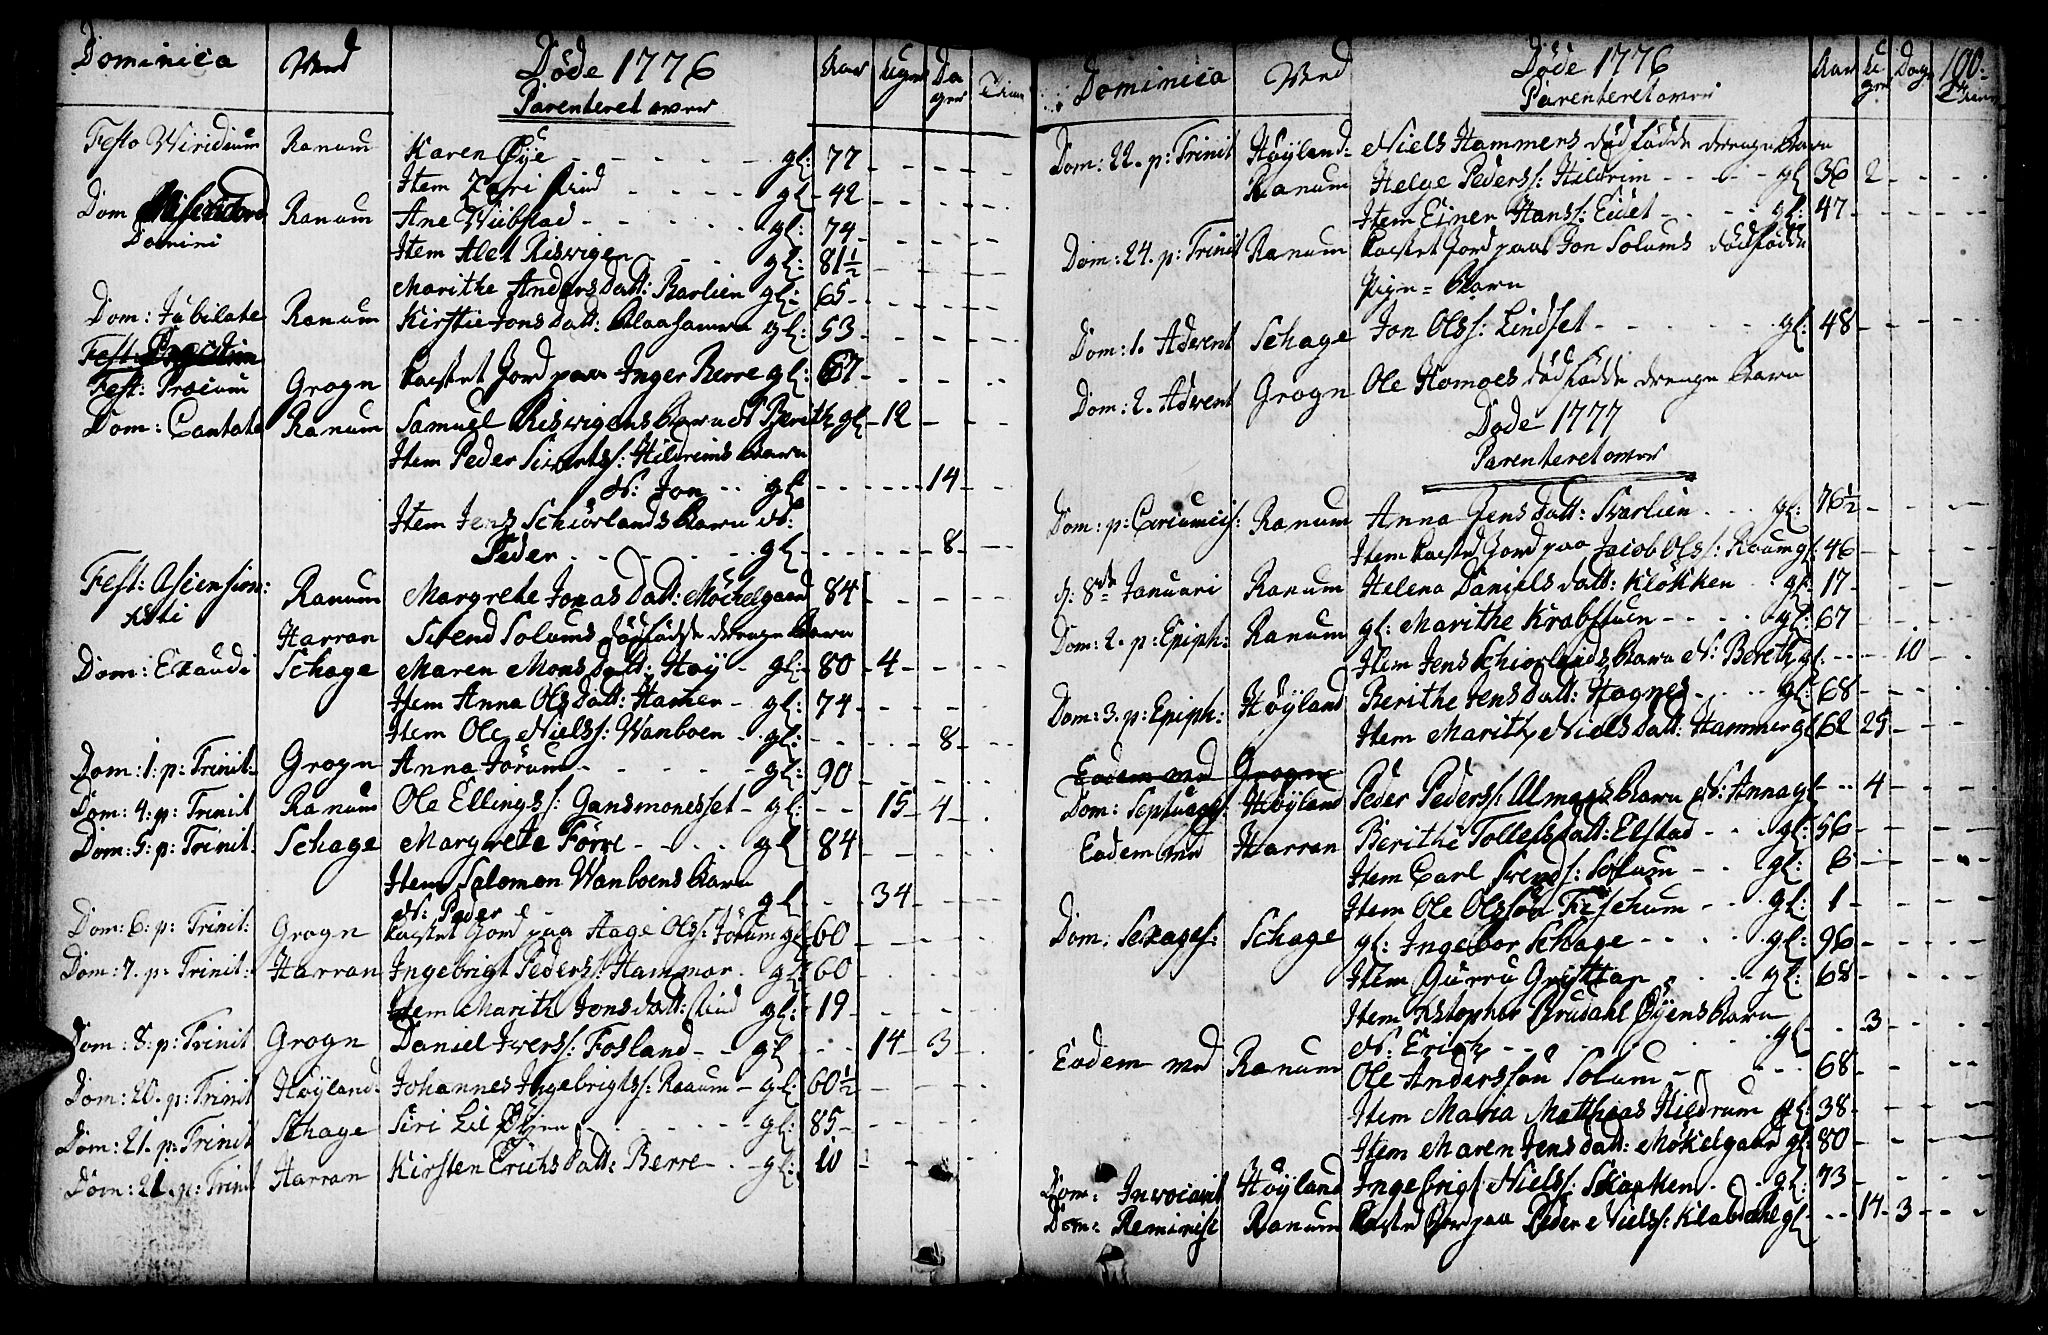 Dominica Ved Døde 1776 Aar Uger Da Timer
Parenteret over ger
Festo Viridium Ranum Karen Øye gl: 77
Item Zari Lind gl 42
Dom Misericord Ranum Ane Viibstad gl: 74
Domini Item Alet Risvigen gl: 81½
Marithe Anders Datt: Barlien gl: 65
Dom: Jubilate Ranum Kirstie Jons Datt: gl: 53
Fest:
Fest: Precum Grogn Kastet Jord paa Inger Berre gl: 67
Dom: Cantate Ranum Samuel Risvigens Barn N Berith gl 12
Item Peder Siverts: Hildrims Barn
N: Jon gl 14
Item Jens Schiörlands Barn N:
Peder gl 8
Fest: Ascension: Ranum Margrete Jonas Datt: Möchelgaard 84
Xsti
Harran Svend Solums dödfödde drenge Barn
Dom: Exaudi Schage Maren Mons Datt: Høy gl: 80 4
Item Anna Ols Datt: Hamer gl: 74
Item Ole Niels: Wanboen gl: 8
Dom: 1: p: Trinit: Grogn Anna Jörum gl: 90
Dom: 4: p: Trinit Ranum Ole Ellings: Gansmonesset gl: 15 4
Dom: 5: p: Trinit: Schage Margrete Förre gl 84
Item Salomon Wanboens Barn
N: Peder gl 34
Dom: 6: p: Trinit: Grogn Kastet Jord paa Aage Ols: Jörum gl 60
Dom: 7. p: Trinit: Harran Ingebrigt Peders: Hammer gl: 60
Item Marith Jons datt: Lind gl: 19
Dom: 8: p: Trinit Grogn Daniel Ivers: Fosland gl 14 3
Dom: 20. p: Trinit Höyland Johannes Ingebrigts: Raaum gl: 60½
Dom: 21. p: Trinit Schage Siri Lil Øyen gl: 85
Dom: 21. p: Trinit Harran Kirsten Erichs Datt: Berre gl: 10
Dominica Ved Døde 1776 Aar U Dag 100
Parenteret over ger Timer
Dom: 22. p: Trinit Höyland Niels Hammers dödfödde drenge Barn
Ranum Helge Peders: Hildrim gl 36 2
Item Einer Hans: Eidet gl: 47
Dom: 24. p: Trinit Ranum Kastet Jord paa Jon Solums dödfödde
Pige Barn
Dom: 1. Advent Schage Jon Ols: Lindset gl: 48
Dom: 2. Advent Grogn Ole Homoes dödfödde drenge Barn
Døde 1777
Parenteret over
Dom: p: Circumcis: Ranum Anna Jens Datt: Barlien gl: 76½
Item Kastet Jord paa Jacob Ols: Raum gl: 46
d: 8de Januari Ranum Helena Daniels Datt: Klökken gl: 17
Dom: 2. p: Epiph: Ranum gl: Marithe Krabstuen gl: 67
Item Jens Schiorlands Barn N: Bereth gl: 10
Dom: 3. p: Epiph: Höyland Berithe Jens Datt: Hagnes gl: 68
Item Marith Niels Datt: Hammer gl 62 25
Eodem ved Grogn
Dom: Septuages: Höyland Peder Peders: Almaas Barn N: Anna gl 4
Eodem ved Harran Berithe Tollefs Datt: Elstad gl: 56
Item Carl Svends: Solum gl: 6
Item Ole Olssön Fischum gl: 1
Dom: Sexages: Schage gl: Ingebor Schage gl: 96
Item Gurru Grøttap gl: 68
Item Kstopher Brudahl Øyens Barn
N: Erich gl 3
Eodem ved Ranum Ole Anderssön Solum 68
Item Maria Matthias Hildrum gl: 38
Item Maren Jens Datt: Mökelgaard gl: 80
Dom: Invocavit Höyland Ingebrigt Niels: Skarken gl: 73
Dom: Reminisc Ranum Kastet Jord paa Peder Niels: Klabdahl gl 14 3